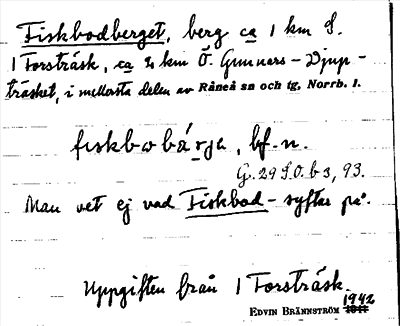 Fiskbodberget, berg ca 1 km S.
1 Forsträsk, ca 2 km Ö. Gunnars-Djup-
träsket, i mellersta delen av Råneå sn och tg, Norrb. l.
fiskbobárja, bf. n.
G. 29 S.O. b 3, 93.
Man vet ej vad Fiskbod- syftar på.
Uppgiften från 1 Forsträsk.
1942
EDVIN BRÄNNSTRÖM 1941